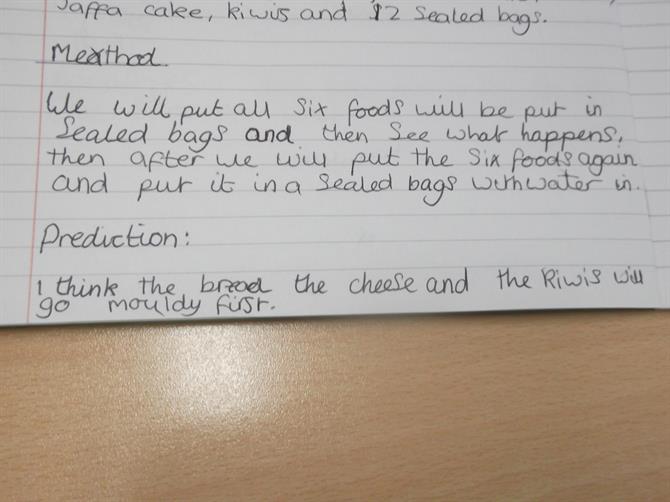 Jaffa cake, kiwis and 12 sealed bags.
Method
We will put all six foods will be put in
Sealed bags and then see what happens,
then after we will put the six foods again
and put it in a sealed bags with water in.
Prediction:
I think the bread the cheese and the kiwis will
go mouldy first.